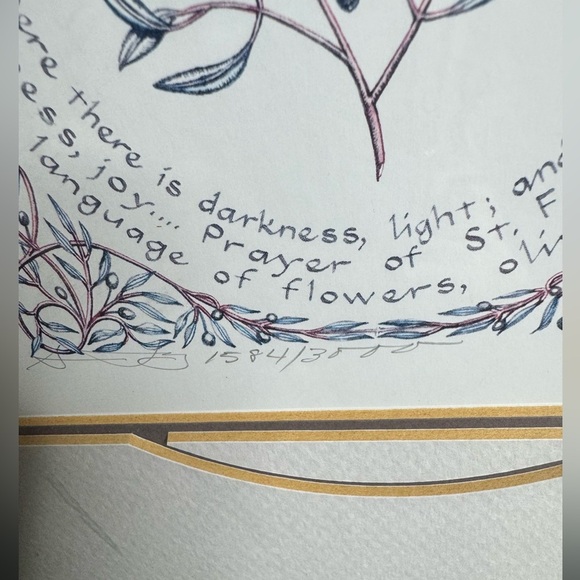 ere there is darkness, light; and
ess, joy.... Prayer of St. F
language of flowers, oliv
1584/3000